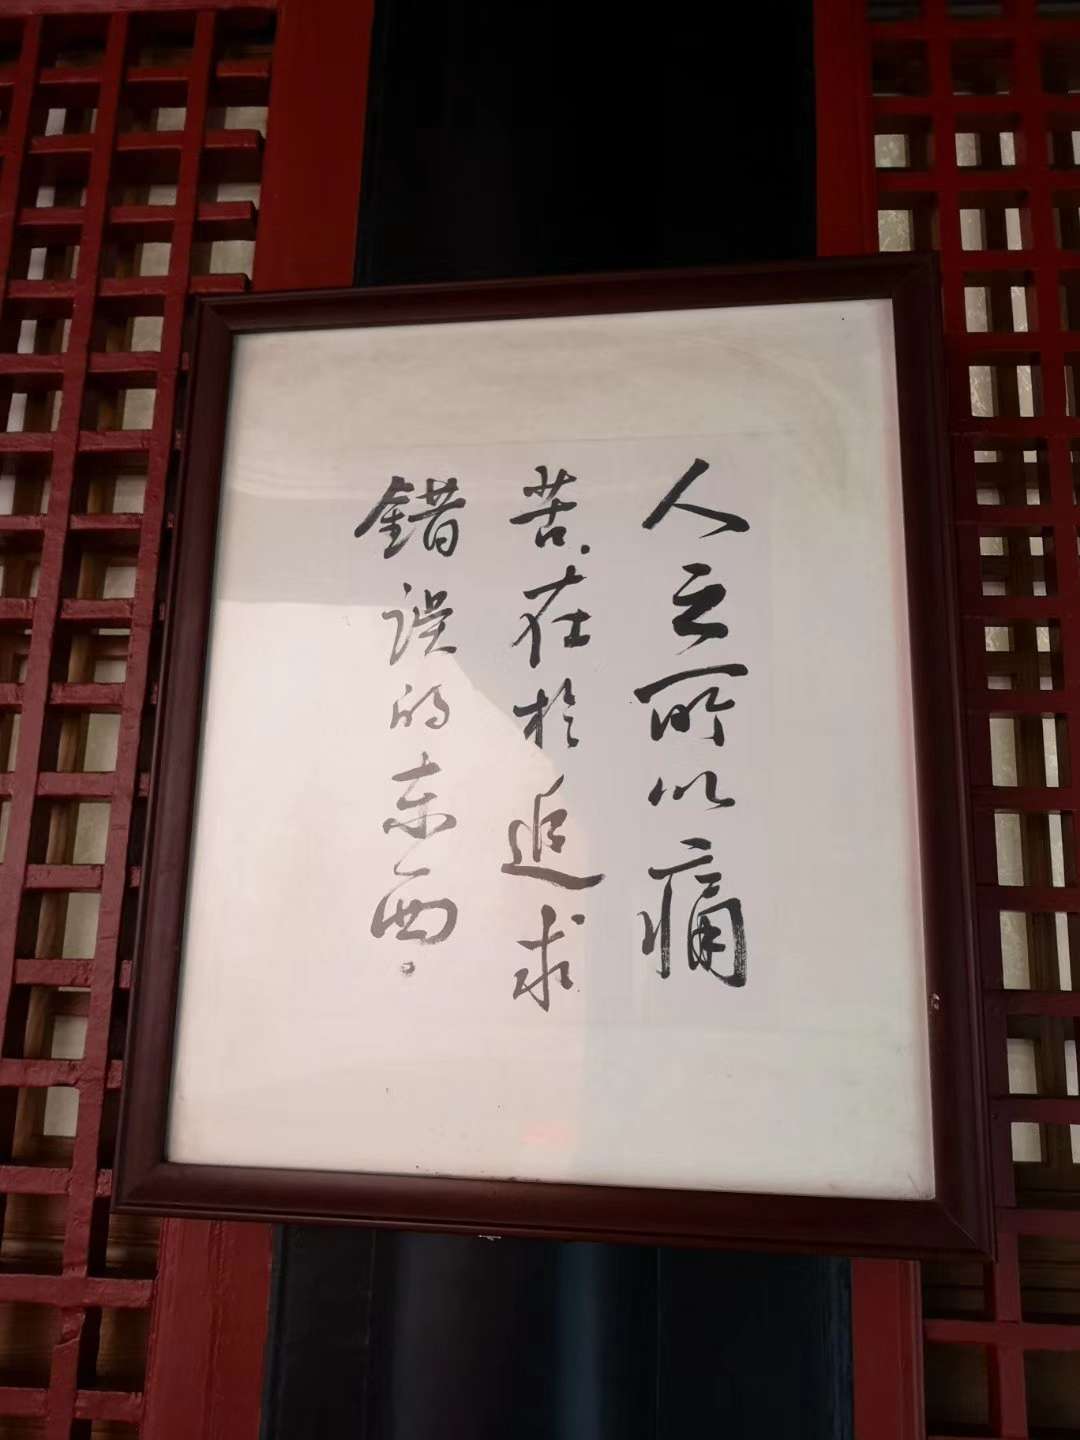 人之所以痛
苦.在於追求
錯误的东西。